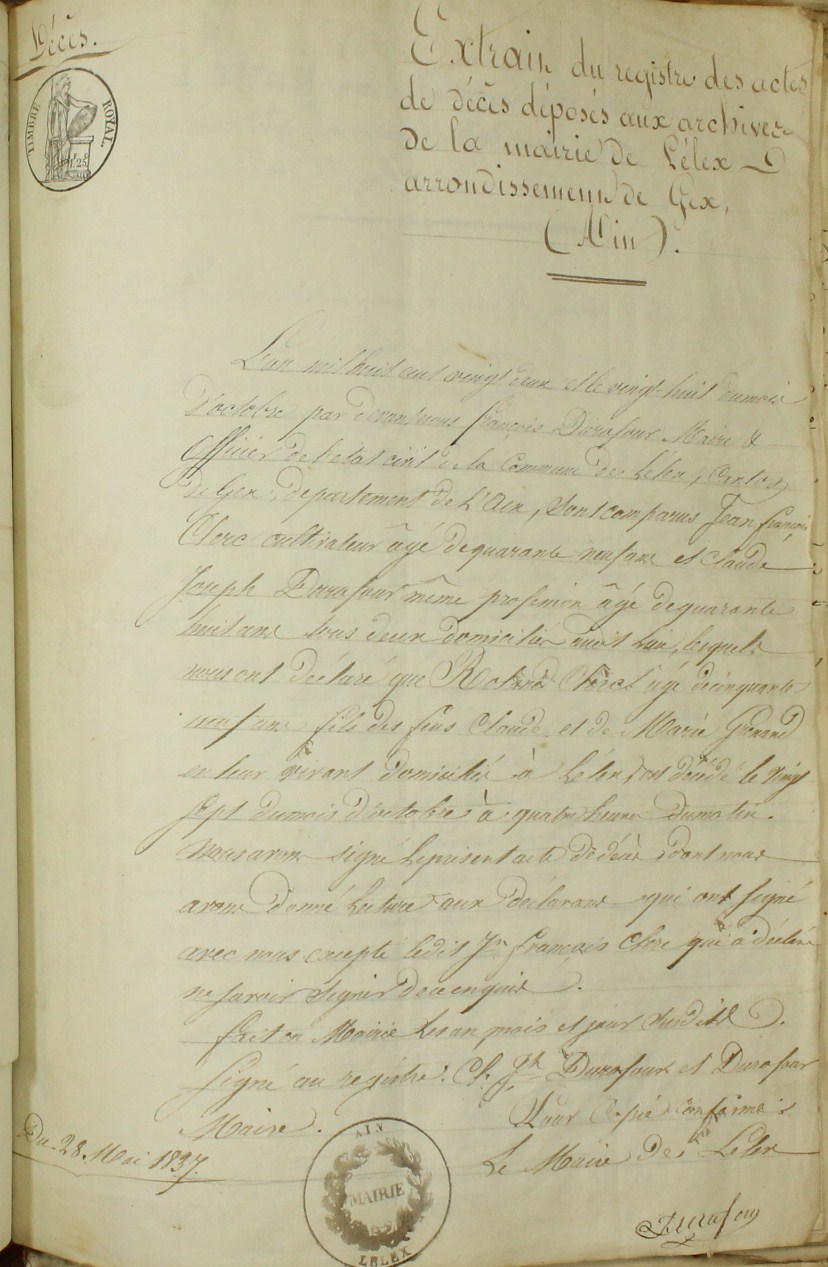 Décès.
TIMBRE ROYAL
1F 25c
Extrait du registre des actes
de décès déposés aux archives
de la mairie de Lélex
arrondissement de Gex,
(Ain).
L'an mil huit cent vingt deux et le vingt-huit du mois
d'octobre par devant nous françois Durafour Maire &
officier de l'état civil de la Commune de Lélex, Canton
de Gex, département de L'Ain, sont comparus Jean françois
Clerc cultivateur âgé de quarante neuf ans et Claude
Joseph Durafour même profession âgé de quarante
huit ans tous deux domiciliés audit lieu, lesquels
nous ont déclaré que Clerc âgé de cinquante
neuf ans fils des feus Claude et de Marie Grenard
en leur vivant domiciliés à Lélex est décédé le vingt
sept du mois d'octobre à quatre heures du matin.
Nous avons signé le présent acte de décès dont nous
avons donné Lecture aux déclarans qui ont signé
avec nous excepté ledit Jn françois Clerc qui a déclaré
ne savoir signer de ce enquis.
fait en Mairie les an mois et jour susdits.
Signé au registre. Cl. Jh Durafour et Durafour
Maire.
Pour Copie conforme
Du 28 Mai 1837.
Le Maire de Lélex
Durafour
AIN
MAIRIE
LELEX